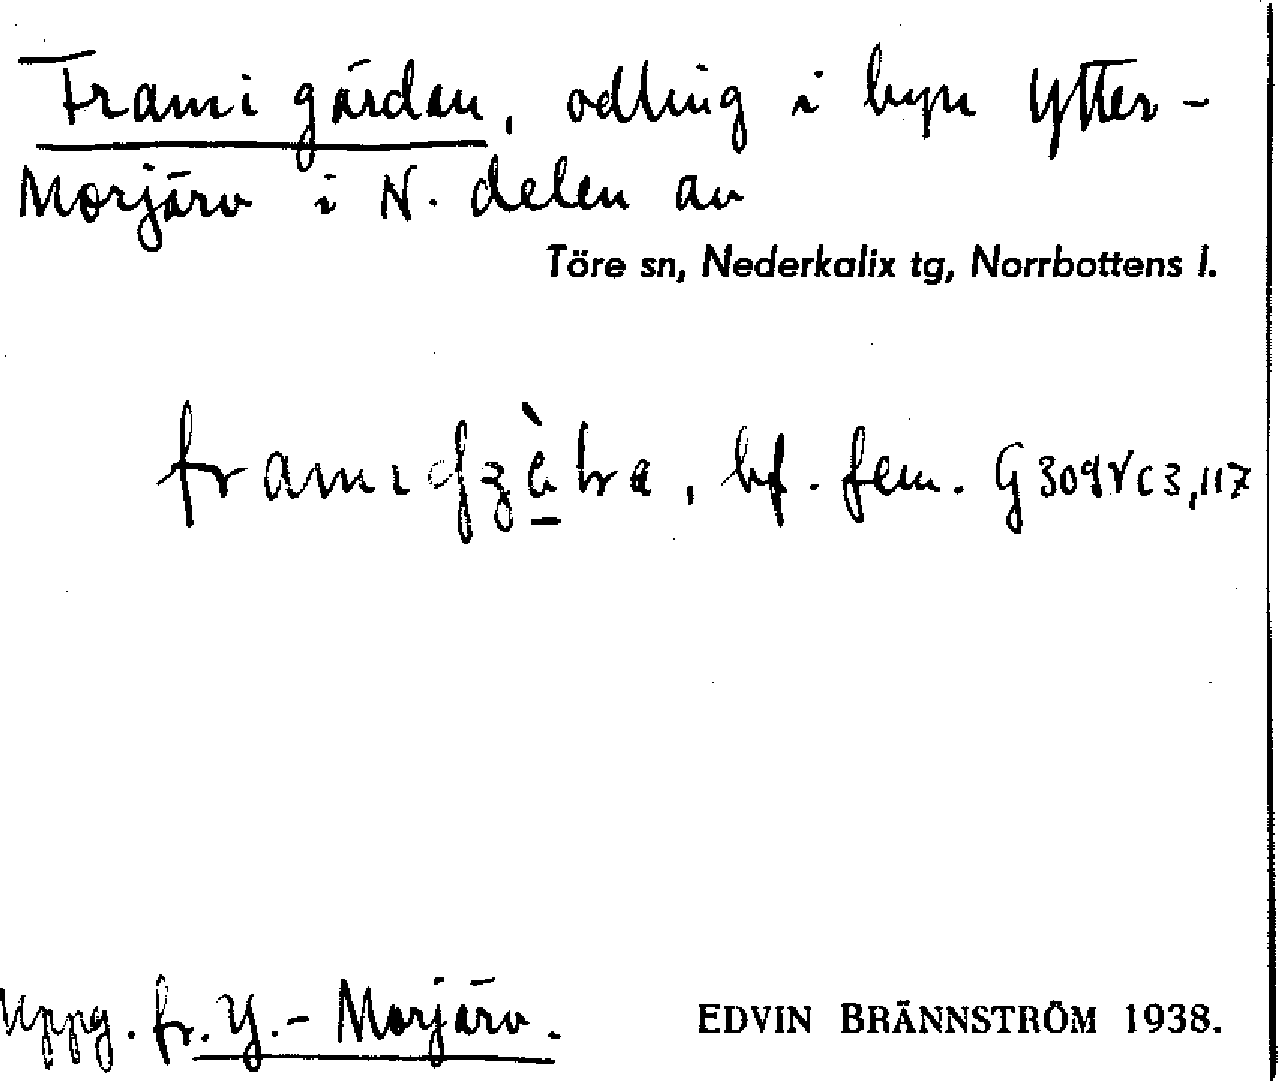 Frami gärdan, odling i byn Ytter-
Morjärv i N. delen av
Töre sn, Nederkalix tg, Norrbottens l.
bf. fem. G
Uppg. fr. Y.- Morjärv.
EDVIN BRÄNNSTRÖM 1938.